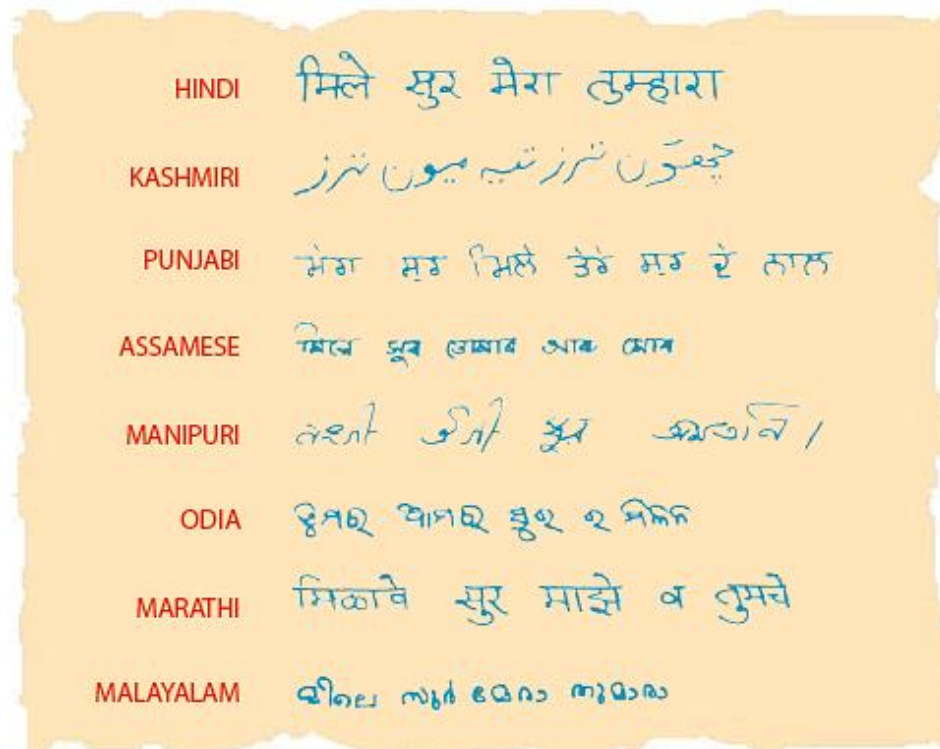 HINDI मिले सुर मेरा तुम्हारा
KASHMIRI
PUNJABI ਮੇਰਾ ਸੁਰ ਮਿਲੇ ਤੇਰੇ ਸੁਰ ਦੇ ਨਾਲ
ASSAMESE মিলে সুৰ তোমাৰ আৰু মোৰ
MANIPURI
ODIA ତୁମର ଆମର ସୁର ର ମିଳନ
MARATHI मिळावे सुर माझे व तुमचे
MALAYALAM മീലെ സുർ മേരാ തുമാരാ